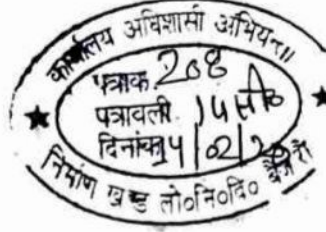 कार्यालय अधिशासी अभियन्ता
पत्रांक 208
पत्रावली
दिनांक 14/02/20
निर्माण खण्ड लो०नि०वि०